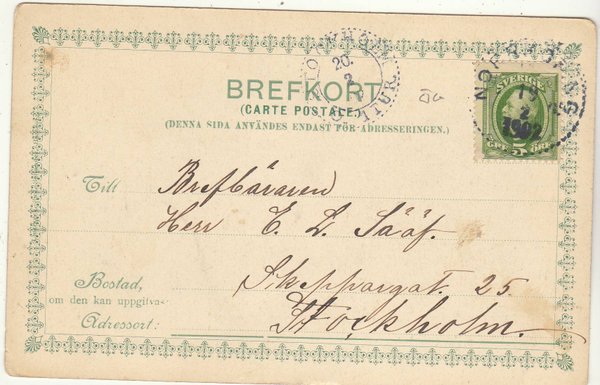 BREFKORT
(CARTE POSTALE)
(DENNA SIDA ANVÄNDES ENDAST FÖR ADRESSERINGEN.)
SVERIGE
5
ÖRE
19
2
1902
20.
2
Till
Brefbäraren
Herr E. L. Sääf.
Bostad,
om den kan uppgifvas
Skeppargat. 25
Adressort:
Stockholm.